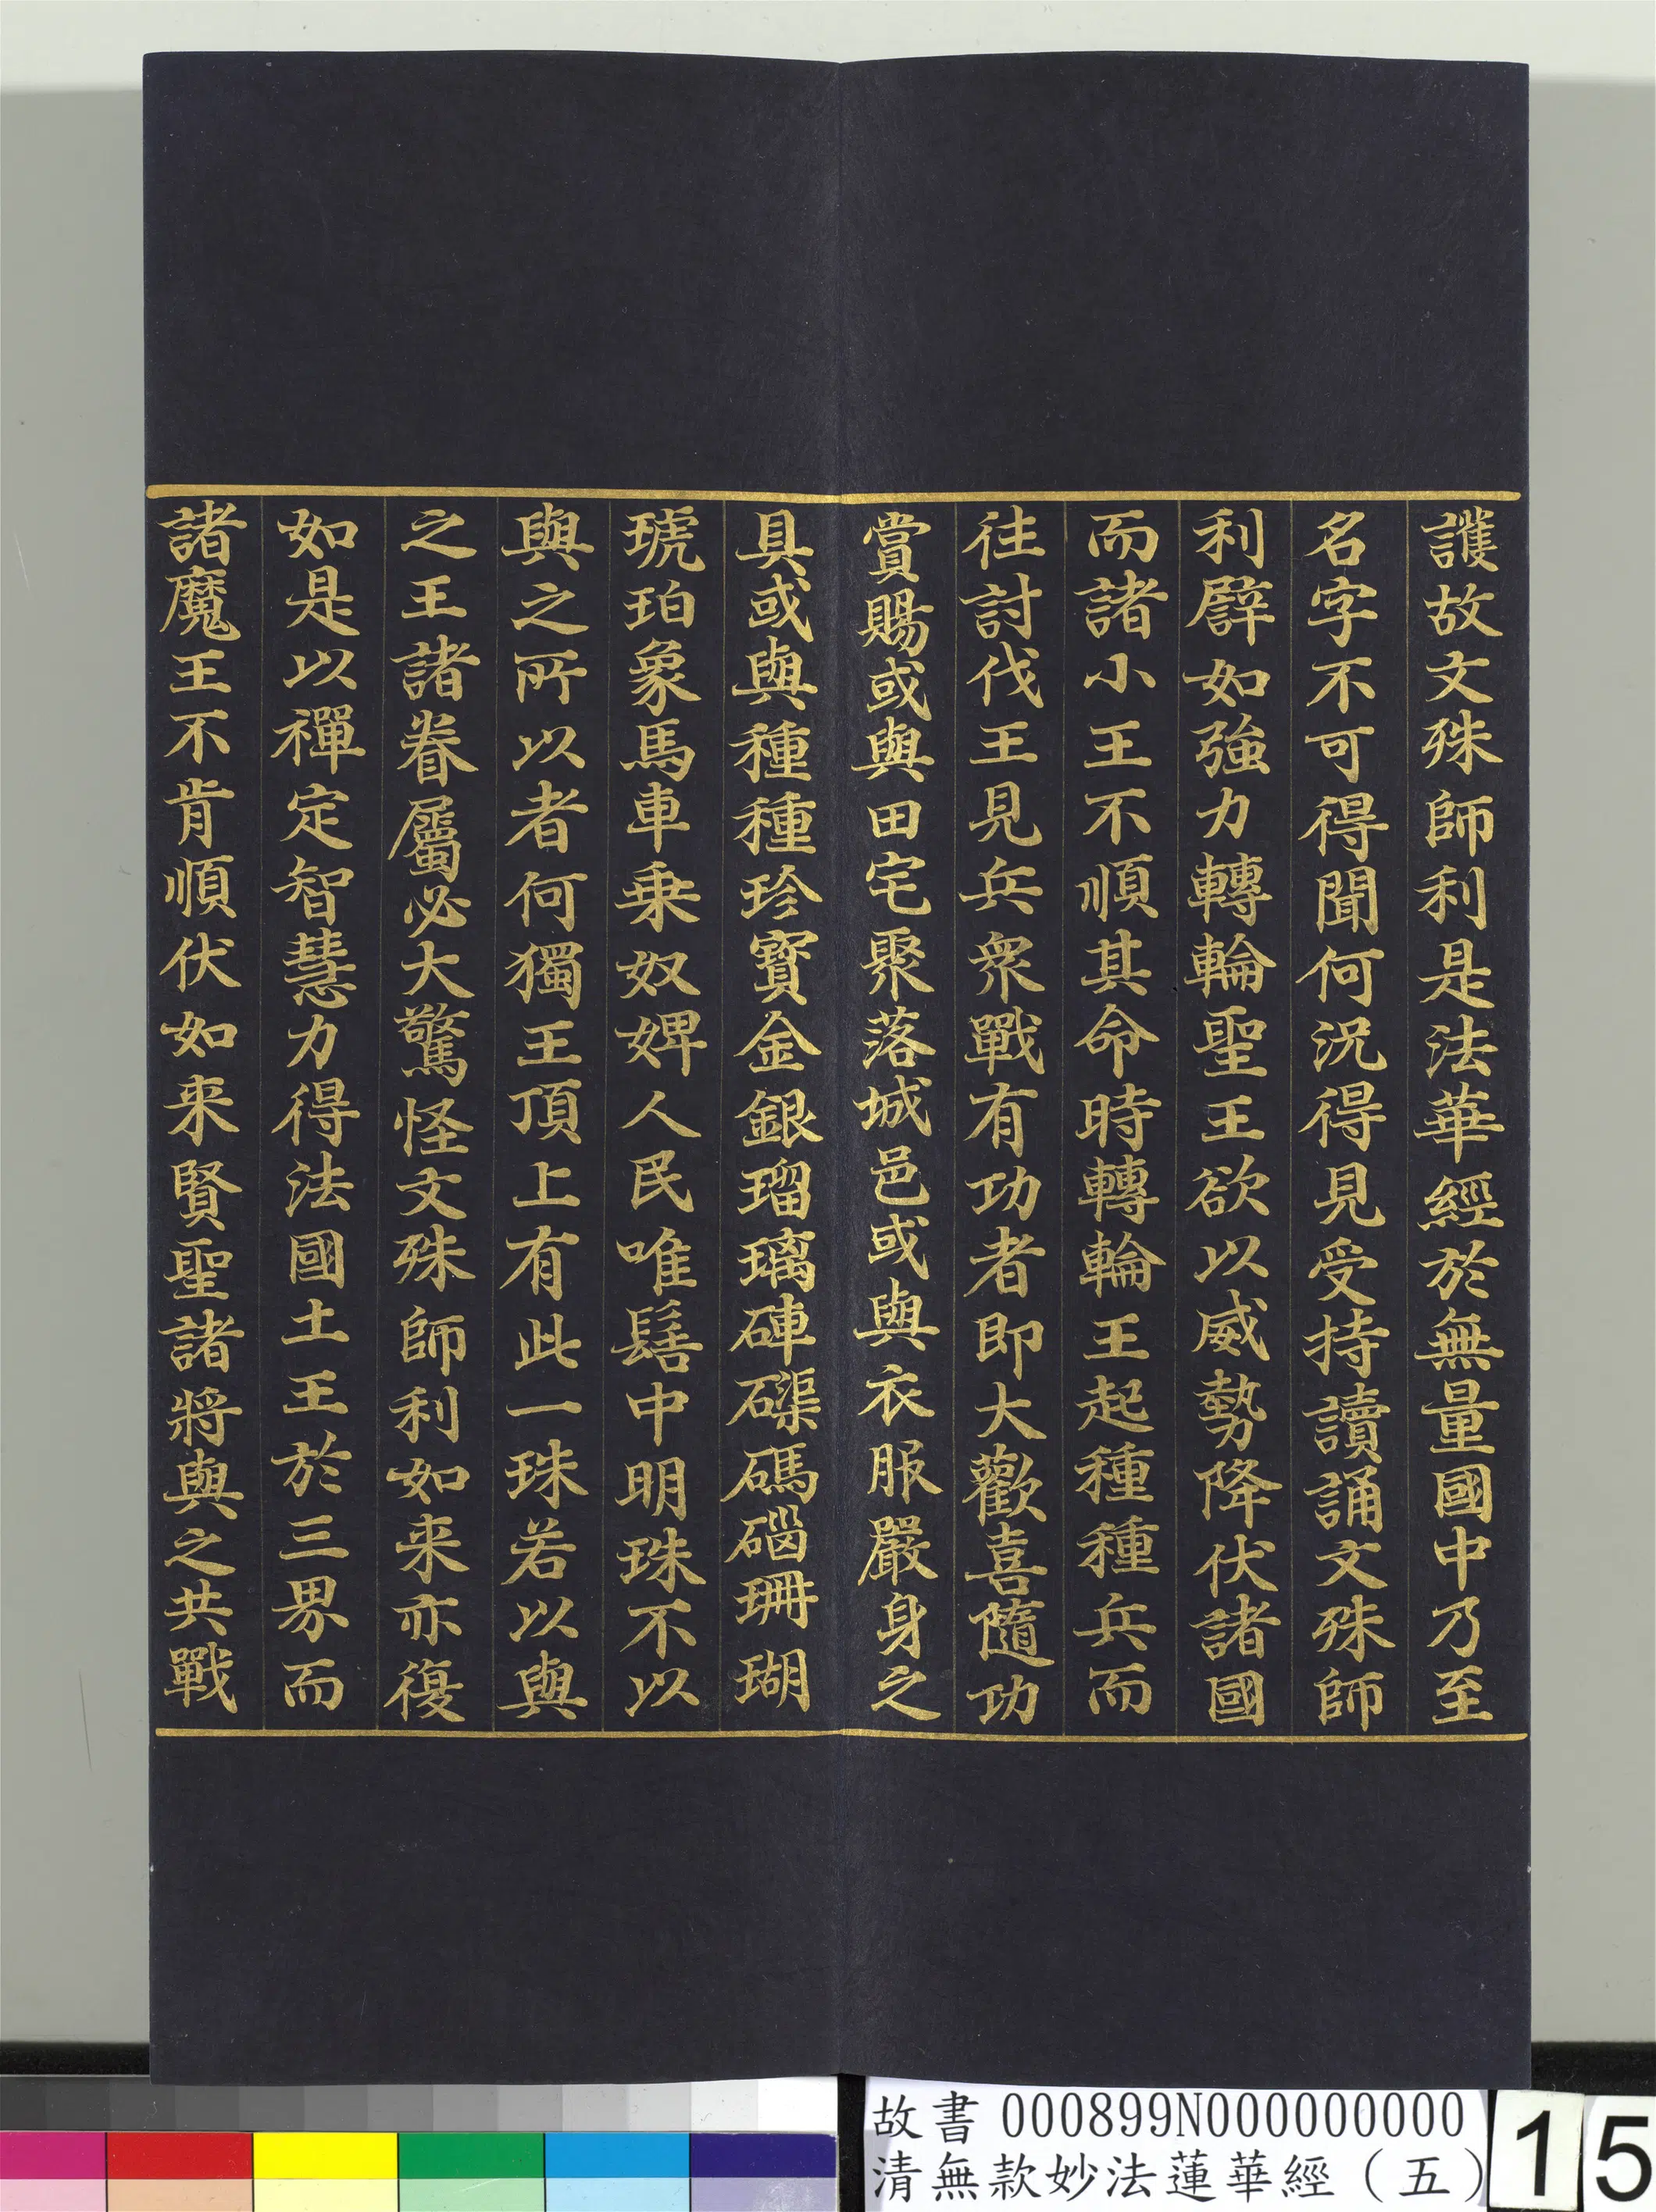 護故文殊師利是法華經於無量國中乃至
名字不可得聞何況得見受持讀誦文殊師
利譬如強力轉輪聖王欲以威勢降伏諸國
而諸小王不順其命時轉輪王起種種兵而
往討伐王見兵衆戰有功者即大歡喜隨功
賞賜或與田宅聚落城邑或與衣服嚴身之
具或與種種珍寶金銀瑠璃硨磲碼碯珊瑚
琥珀象馬車乗奴婢人民唯髻中明珠不以
與之所以者何獨王頂上有此一珠若以與
之王諸眷屬必大驚怪文殊師利如来亦復
如是以禪定智慧力得法國土王於三界而
諸魔王不肯順伏如来賢聖諸將與之共戰
故書 000899N000000000
清無款妙法蓮華經（五）
15